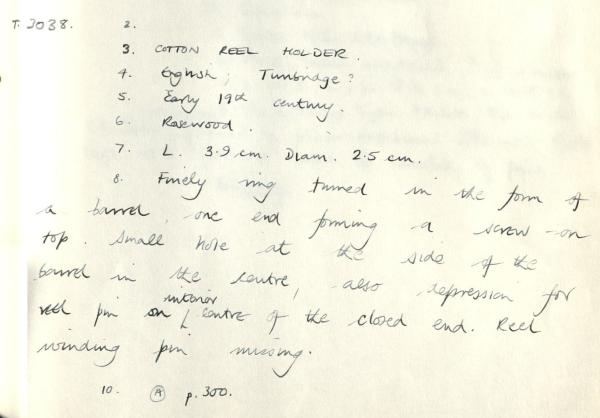 T. 3038. 2.
3. COTTON REEL HOLDER.
4. English; Tunbridge?
5. Early 19th century.
6. Rosewood.
7. L. 3.9 cm. Diam. 2.5 cm.
8. Finely ring turned in the form of
a barrel, one end forming a screw-on
top. Small hole at the side of the
barrel in the centre, also depression for
reel pin on interior centre of the closed end. Reel
winding pin missing.
10. (A) p. 300.